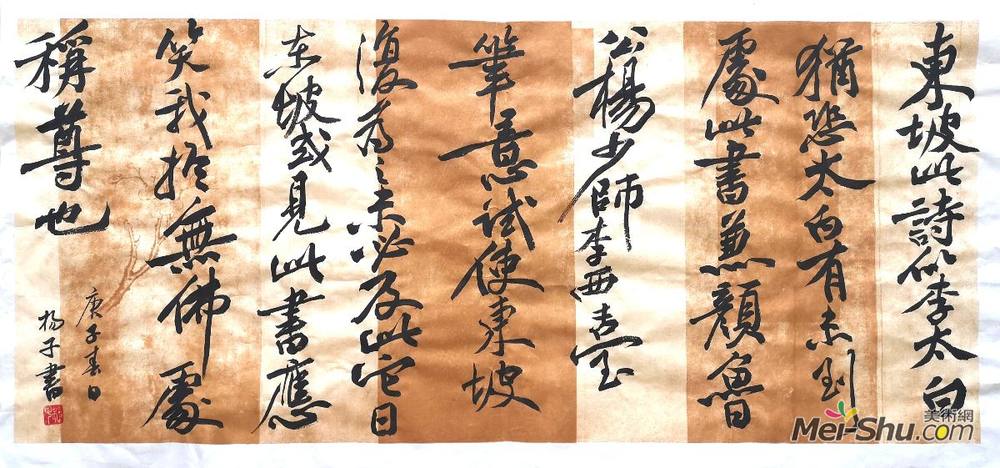 東坡此詩似李太白
猶恐太白有未到
處此書兼顏魯
公楊少師李西臺
筆意試使東坡
復為之未必及此它日
東坡或見此書應
笑我於無佛處
稱尊也
庚子春日
楊子書
美術網
Mei-Shu.com